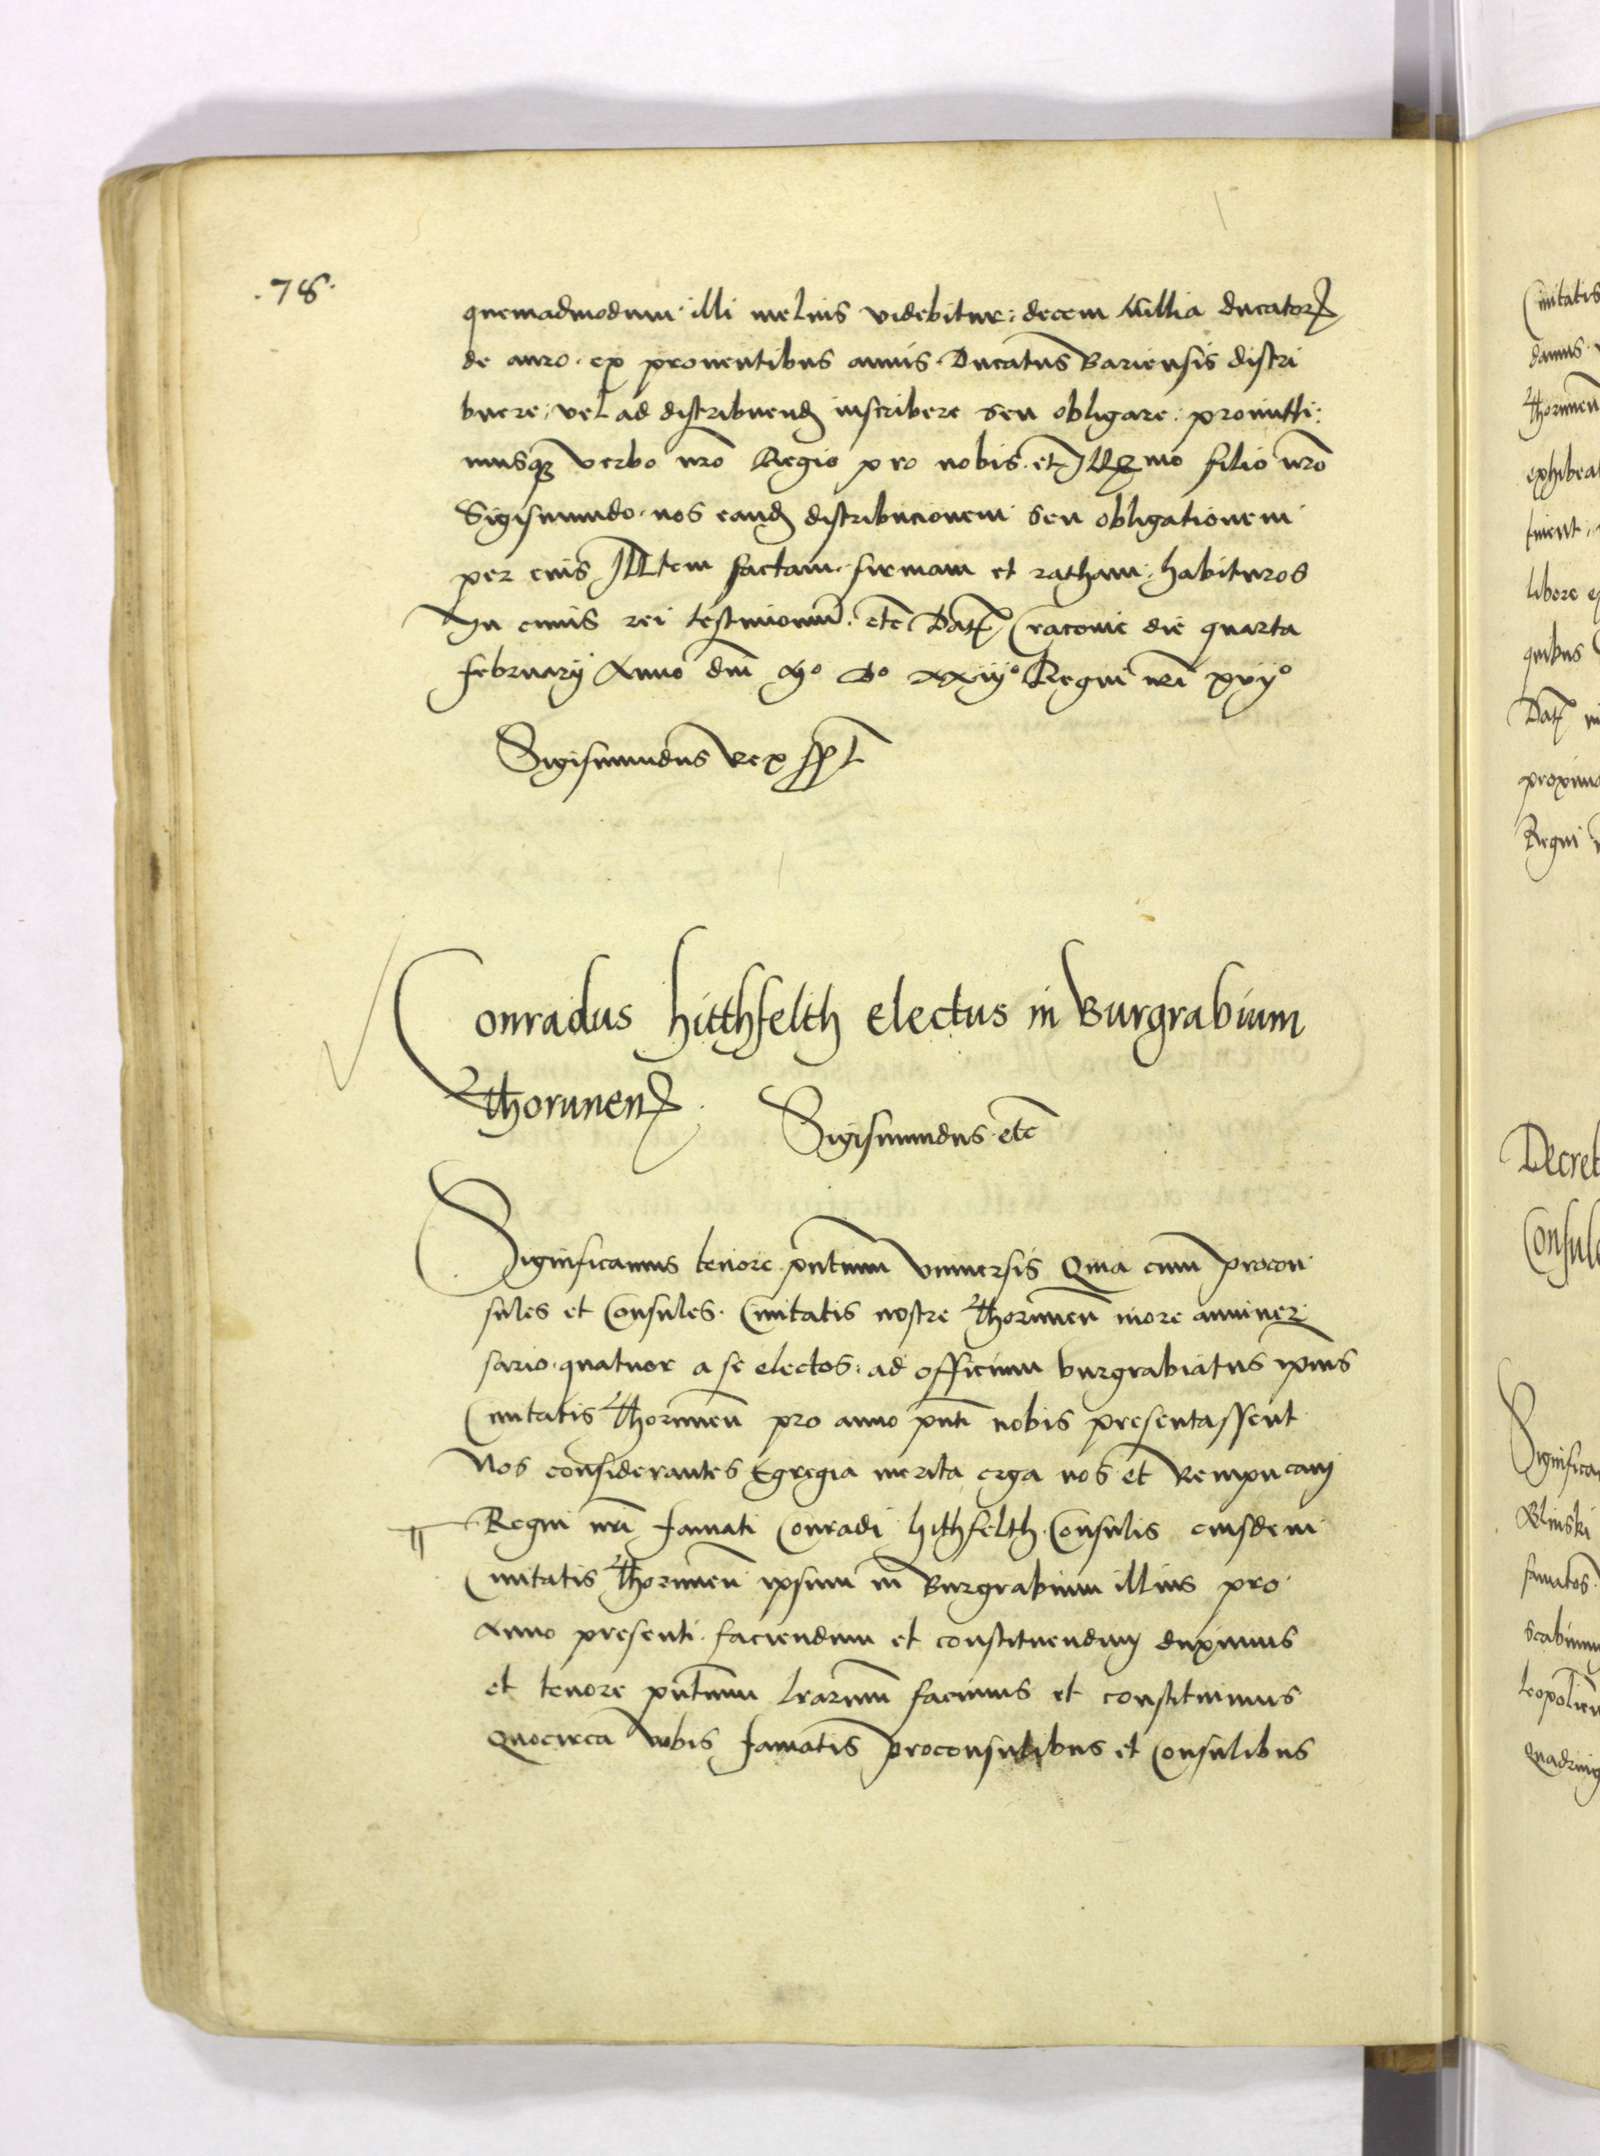 .78.
quemadmodum illi melius videbitur: decem Millia ducatorꝝ
de auro ex proventibus annis Ducatus Bariensis distri
buere, vel ad distribuendꝫ inscribere seu obligare: promitti:
musqꝫ verbo nr̄o Regio pro nobis et Illꝫmo filio nr̄o
Sigismundo nos eandꝫ distribucionem seu obligationem
per eius Illtem factam firmam et ratham habituros
In cuius rei testimoniū etc̄ Datꝭ Cracovie die quarta
february Anno dn̄i Mº Dº xxiijº Regni nr̄i xvijº
Sigismundus rex sspt
Conradus hitthfelth electus in Burgrabium
Thorunenꝭ Sigismundus etc̄
Significamus tenore pn̄tium vniuersis Quia cum procon
sules et Consules Ciuitatis nostre Thorunen̄ more anniuer
sario quatuor a se electos ad officium burgrabiatus ip̄ius
Ciuitatis Thorunen̄ pro anno pn̄ti nobis presentassent
Nos considerantes Egregia merita erga nos et Rempu cam
Regni nr̄i famati Conradi hithfelth Consulis eiusdem
Ciuitatis Thorunen̄ ipsum in Burgrabium illius pro
Anno presenti faciendum et constituendum duximus
et tenore pn̄tium lr̄arum facimus et constituimus
Quocirca vobis famatis proconsulibus et Consulibus
Ciuitatis
damus
Thorunen
exhibea
tinent
libere e
quibus
Datꝭ
proximo
Regni
Decret
Consul
Significa
Blinski
famatos
scabinum
leopolien
Quadring